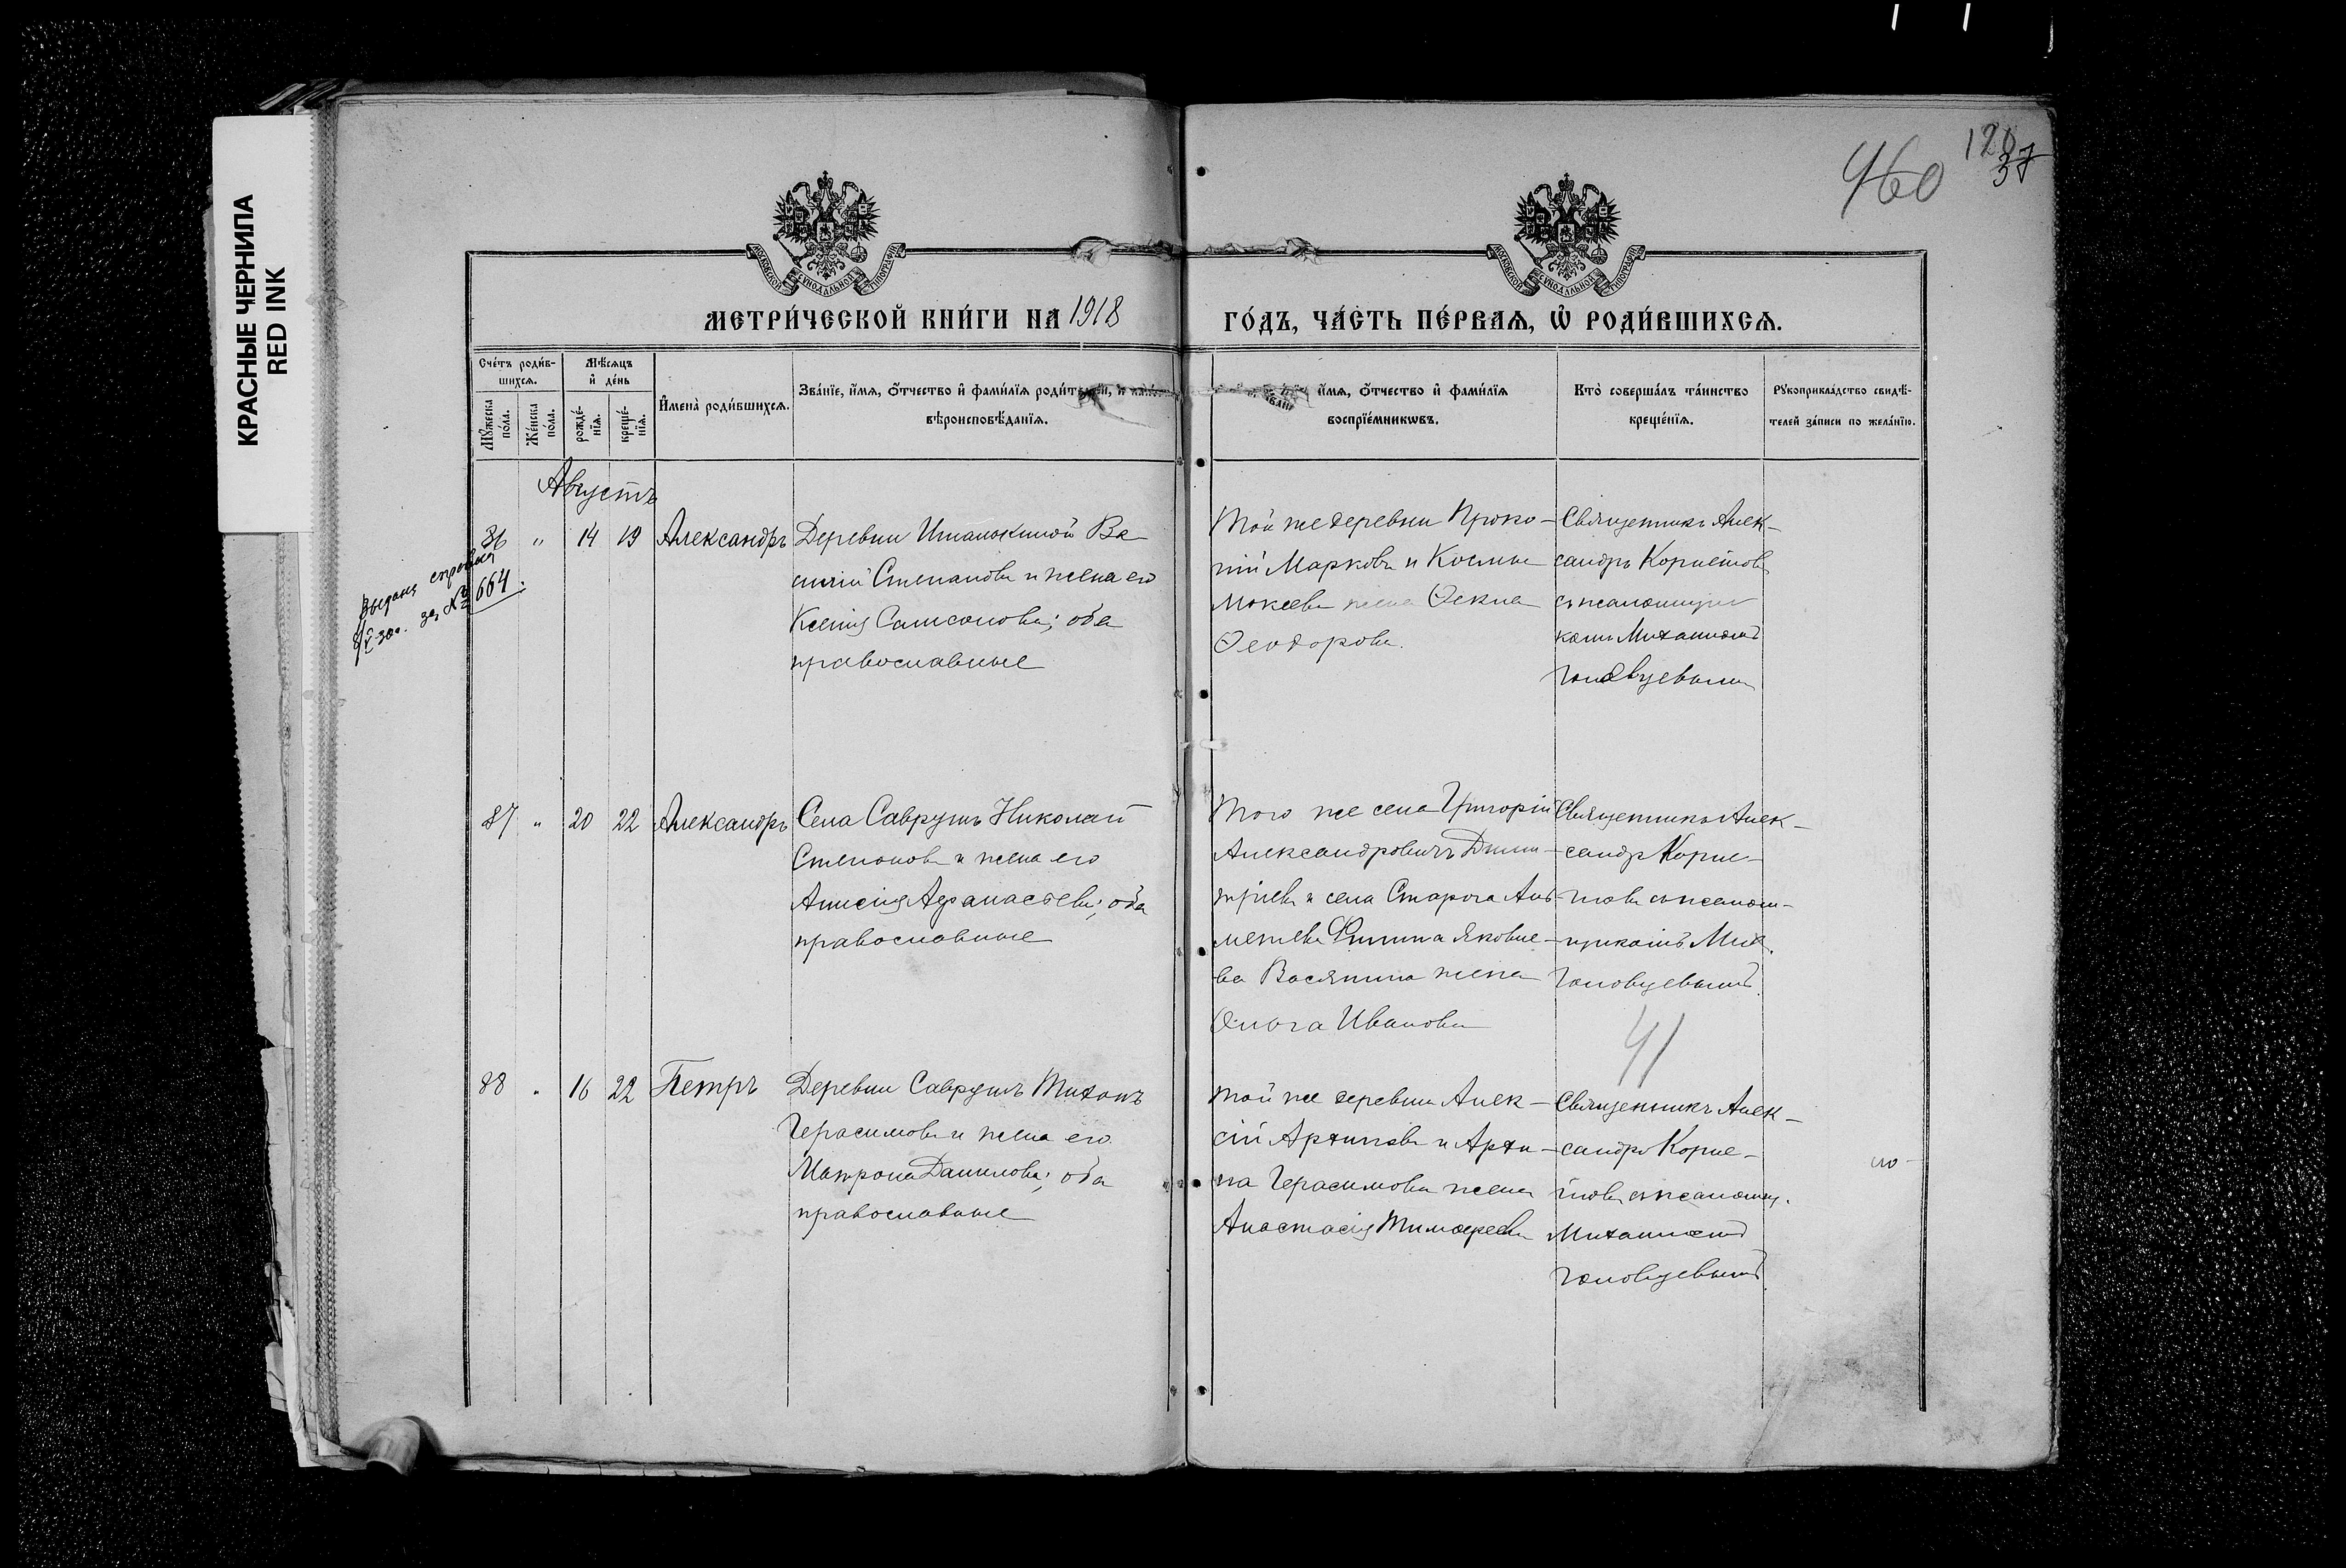 КРАСНЫЕ ЧЕРНИЛА
RED INK
460
120
37
МОСКОВСКОЙ СѴНОДАЛЬНОЙ ТИПОГРАФІИ
МОСКОВСКОЙ СѴНОДАЛЬНОЙ ТИПОГРАФІИ
МЕТРИ́ЧЕСКОЙ КНИ́ГИ НА 1918 ГО́ДЪ, ЧА́СТЬ ПЕ́РВАѦ, Ѡ҆ РОДИ́ВШИХСѦ.
Сче́тъ роди́в-
шихсѧ.
Мꙋ́жеска по́ла.
Же́нска по́ла.
Мѣ́сѧцъ
и҆ де́нь
рожде́-
нїѧ.
креще́-
нїѧ.
И҆мена̀ роди́вшихсѧ.
Зва́нїе, и҆́мѧ, ѻ҆́тчество и҆ фамѝлїѧ роди́телей, и҆
вѣроисповѣ́данїѧ.
и҆́мѧ, ѻ҆́тчество и҆ фами́лїѧ
воспрїе́мникѡвъ.
Кто̀ соверша́лъ та́инство
креще́нїѧ.
Рꙋкоприкла́дство свидѣ́-
телей за́писи по жела́нїю.
Августъ
36 " 14 19 Александръ
Деревни Ва-
силій Степановъ и жена его
Ксенія Самсонова; оба
православные
Той же деревни Проко-
пій Марковъ и Космы
Мокеева жена Ѳекла
Ѳеодорова.
Священникъ Алек-
сандръ Корнетовъ
съ псаломщи-
комъ Михаиломъ
Головцевымъ
Выдана справка
за № 664.
87 " 20 22 Александръ
Села Саврушъ Николай
Степановъ и жена его
Анисія Афанасьева; оба
православные
Того же села Григорій
Александровичъ Дми-
тріевъ и села Стараго Аль-
метева Филиппа Яковле-
ва Васянина жена
Ольга Иванова
Священникъ Алек-
сандръ Корне-
товъ съ псалом-
щикомъ Мих.
Головцевымъ.
41
88 " 16 22 Петръ
Деревни Саврушъ Тихонъ
Герасимовъ и жена его
Матрона Данилова; оба
православные
Той же деревни Алек-
сій Архиповъ и Архи-
па Герасимова жена
Анастасія Тимофеева
Священникъ Алек-
сандръ Корне-
товъ съ псаломщ.
Михаиломъ
Головцевымъ